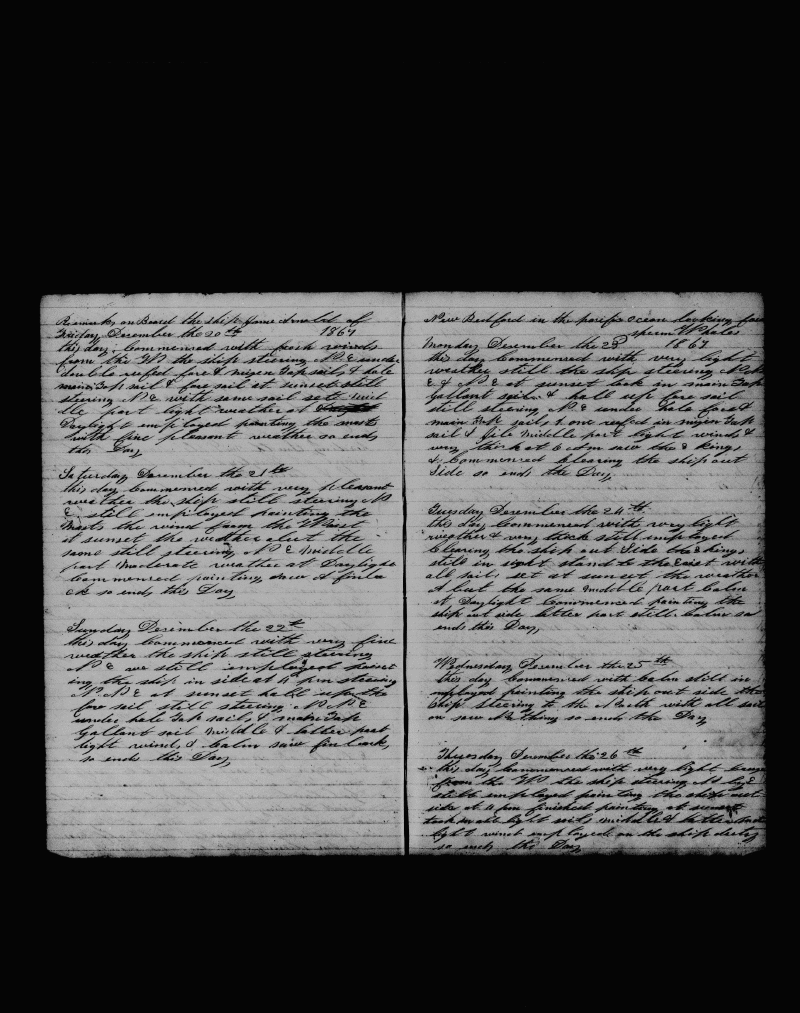 Remarks on Board the Ship James Arnold of
Friday December the 20th 1867
this day Commenced with fresh winds
from the W the ship steering N E under
double reefed fore & mizen Top sails & hole
main Top sail & fore sail at sunset still
steering N E with same sail set Midd
lle part light weather at
Daylight employed painting the masts
with fine pleasant weather so ends
this Day
Saturday December the 21th
this day Commenced with very pleasent
weather the ship still steering N
E still employed painting the
Masts the wind from the West
at sunset the weather abut the
same still steering N E Middle
part Moderate weather at Daylight
Commenced painting saw A finba
ck so ends this Day
Sunday December the 22th
this day Commenced with very fine
weather the ship still steering
N E we still employed paint
ing the ship in side at 4 pm steering
N N E at sunset hall up the
fore sail still steering N N E
under hole Top sails & main Top
Gallant sail Middle & latter part
light winds & Calm saw finback,
so ends this Day
New Bedford in the pacific ocean looking for
sperm Whales
Monday December the 23 1867
this day Commenced with very light
weather still the ship steering N
E & N E at sunset took in main Top
Gallant sails & hall up fore sail
still steering N E under hole fore &
main Top sails & one reefed in mizen Top
sail & Middle part light winds &
very thick at 6 Am saw the 2 kings
& Commenced Clearing the ship out
Side so ends the Day
Tuesday December the 24th
this day Commenced with very light
weather & very thick still employed
Clearing the ship out Side the kings
still in sight stand to the East with
all sails set at sunset the weather
A but the same Middle part Calm
at Daylight Commenced painting the
ship out side latter part still Calm so
ends the Day,
Wednesday December the 25th
this day Commenced with Calm still in
employed painting the ship out side the
Ship steering to the North with all sail
on saw Nothing so ends the Day
Thursday December the 26th
this day Commenced with very light
from the W the ship steering N by E
still employed painting the ship out
side at 4 pm finished painting at sunset
took in all light sails middle & latter part
light winds employed on the ship duty
so ends the Day